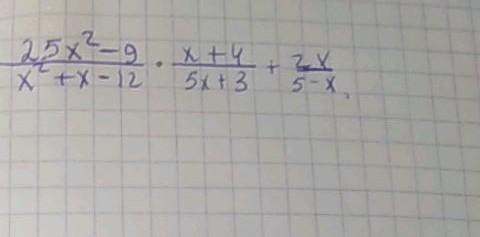 25x²-9 / x²+x-12 · x+4 / 5x+3 + 2x / 5-x.